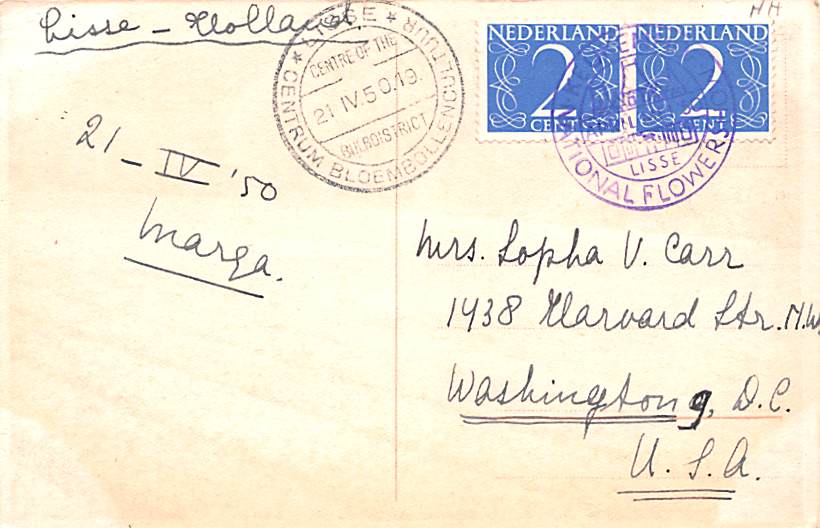 Lisse - Holland.
HH
LISSE
CENTRE OF THE
21 IV.5 0.19.
BULBDISTRICT
CENTRUM BLOEMBOLLENCULTUUR
NEDERLAND
2
CENT
NEDERLAND
2
CENT
LISSE
NATIONAL FLOWERSHOW
21 - IV '50
Marga.
Mrs. Lopha V. Carr
1438 Harvard Str. N.W.
Washington 9, D.C.
U.S.A.